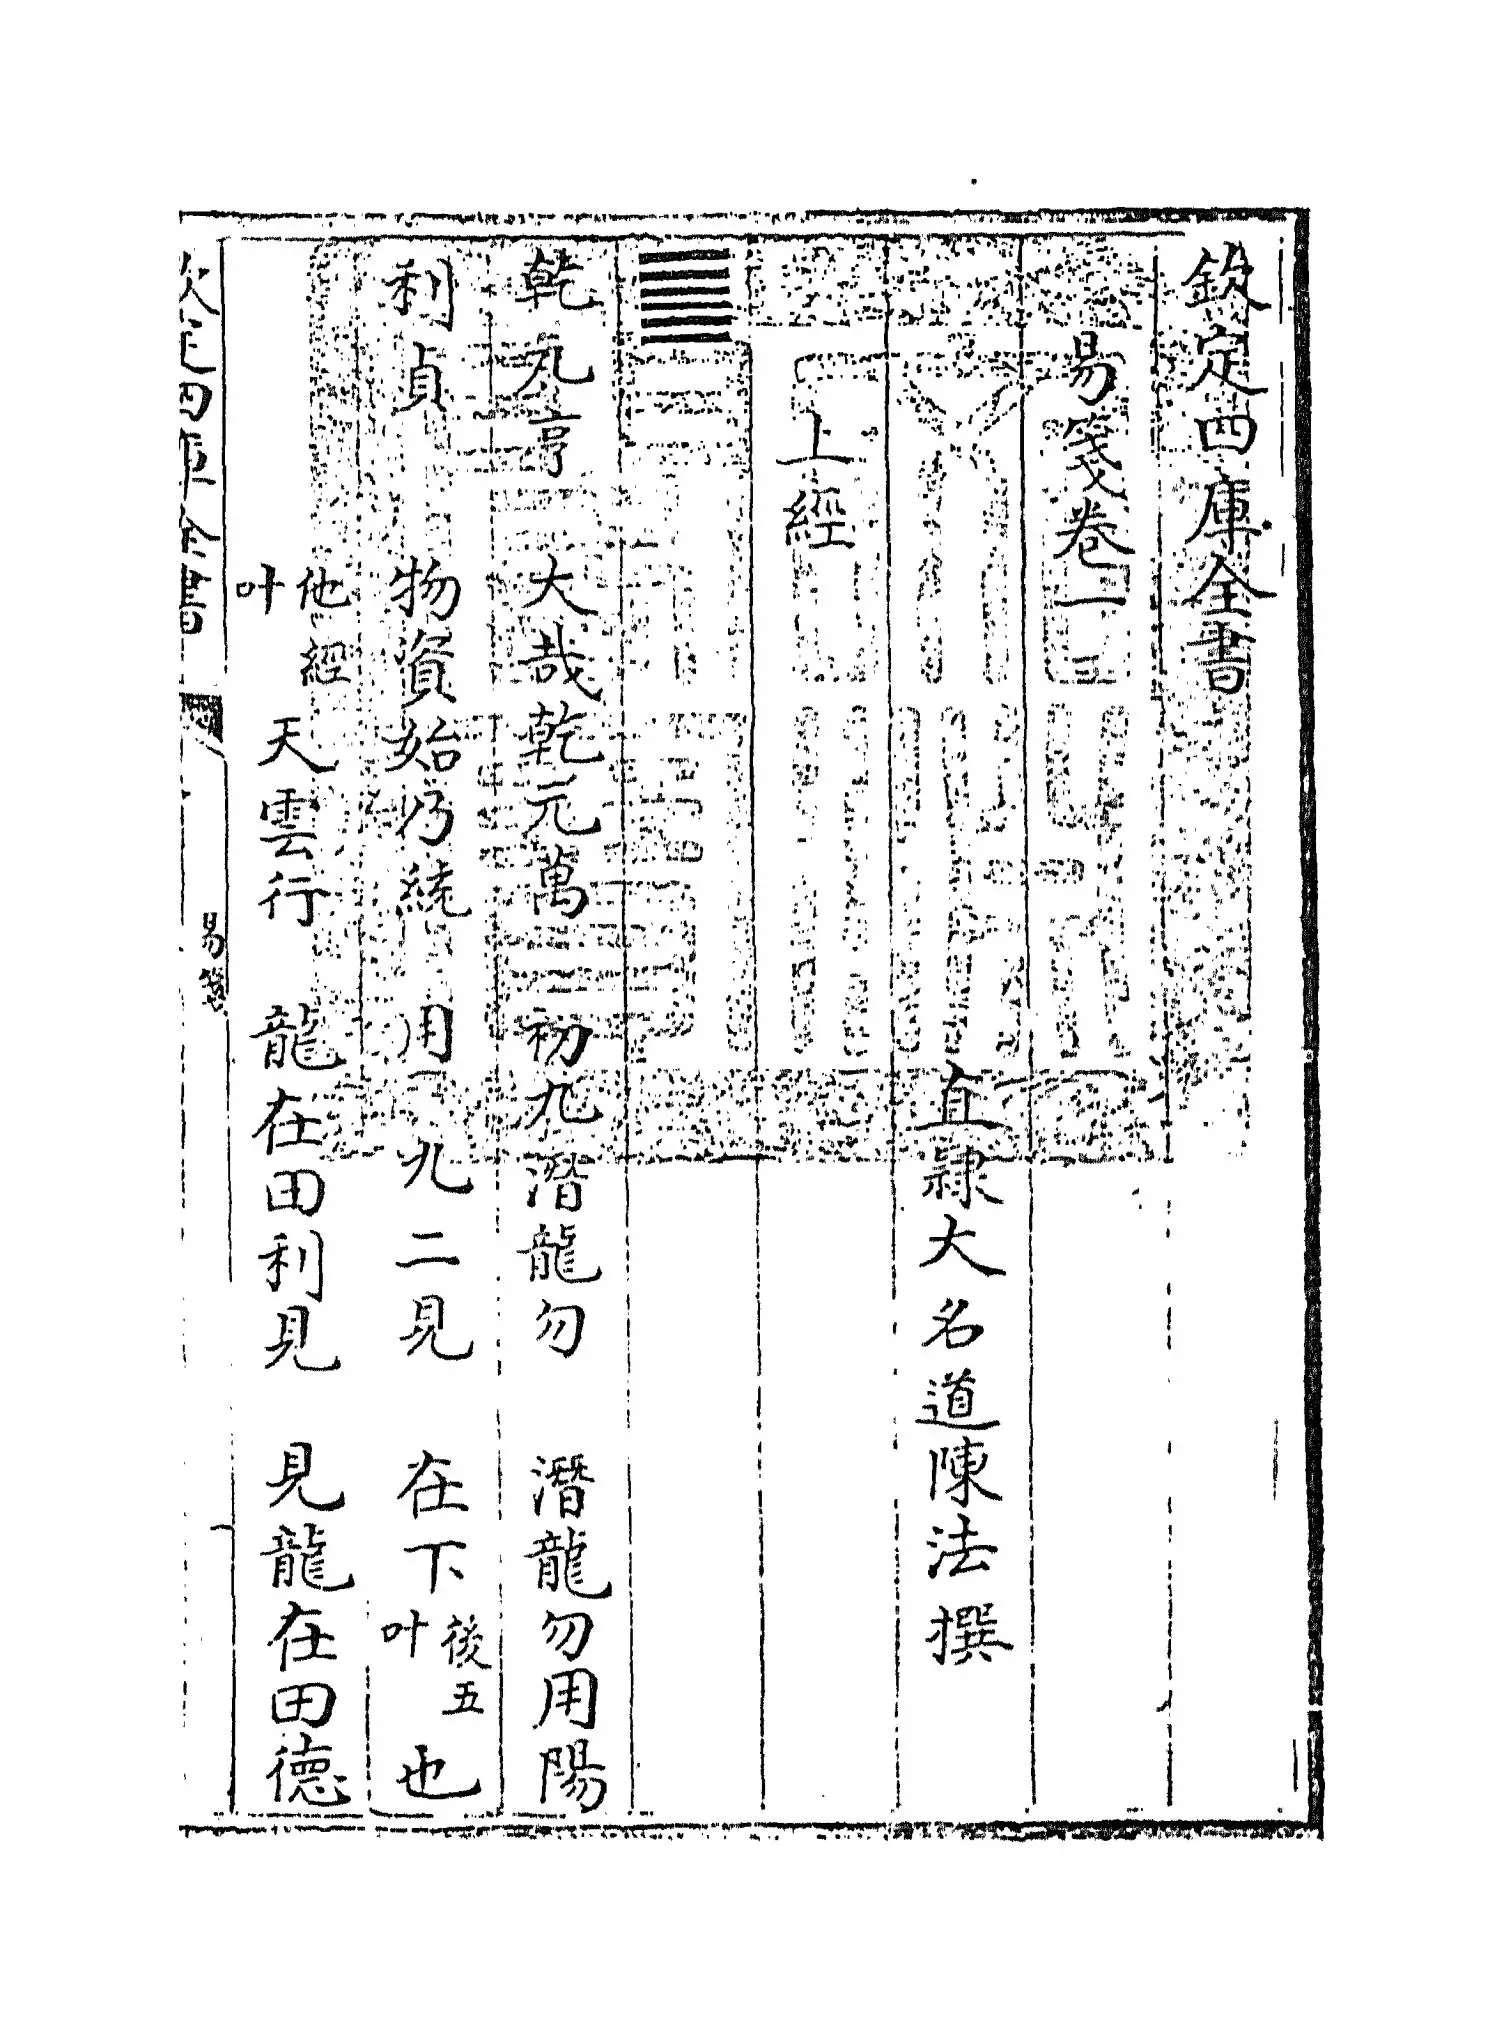 欽定四庫全書
易箋卷一
直隸大名道陳法撰
上經
䷀
乾元亨　大哉乾元萬　初九潛龍勿　潛龍勿用陽
利貞　物資始乃統　用　九二見　在下後五叶也
他經叶天雲行　龍在田利見　見龍在田德
欽定四庫全書　易箋